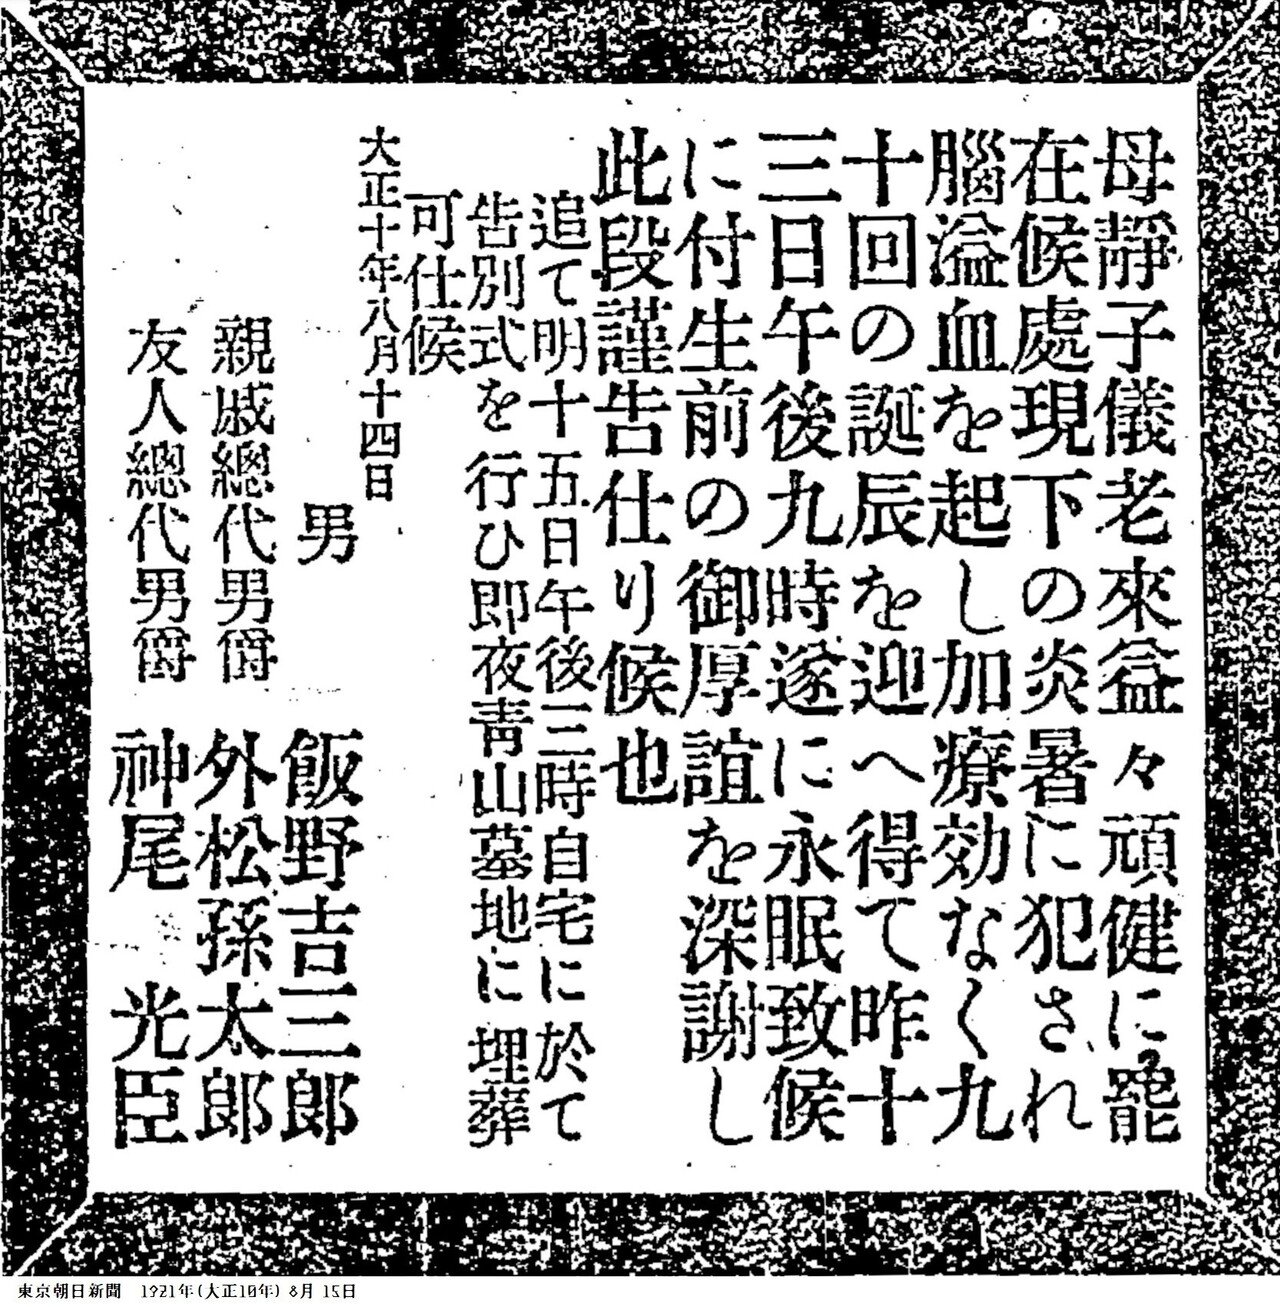 母靜子儀老來益々頑健に罷
在候處現下の炎暑に犯され
腦溢血を起し加療効なく九
十回の誕辰を迎へ得て昨十
三日午後九時遂に永眠致候
に付生前の御厚誼を深謝し
此段謹告仕り候也
追て明十五日午後三時自宅に於て
告別式を行ひ即夜靑山墓地に埋葬
可仕候
大正十年八月十四日
男 飯野吉三郎
親戚總代男爵 外松孫太郎
友人總代男爵 神尾光臣
東京朝日新聞 1921年(大正10年) 8月 15日